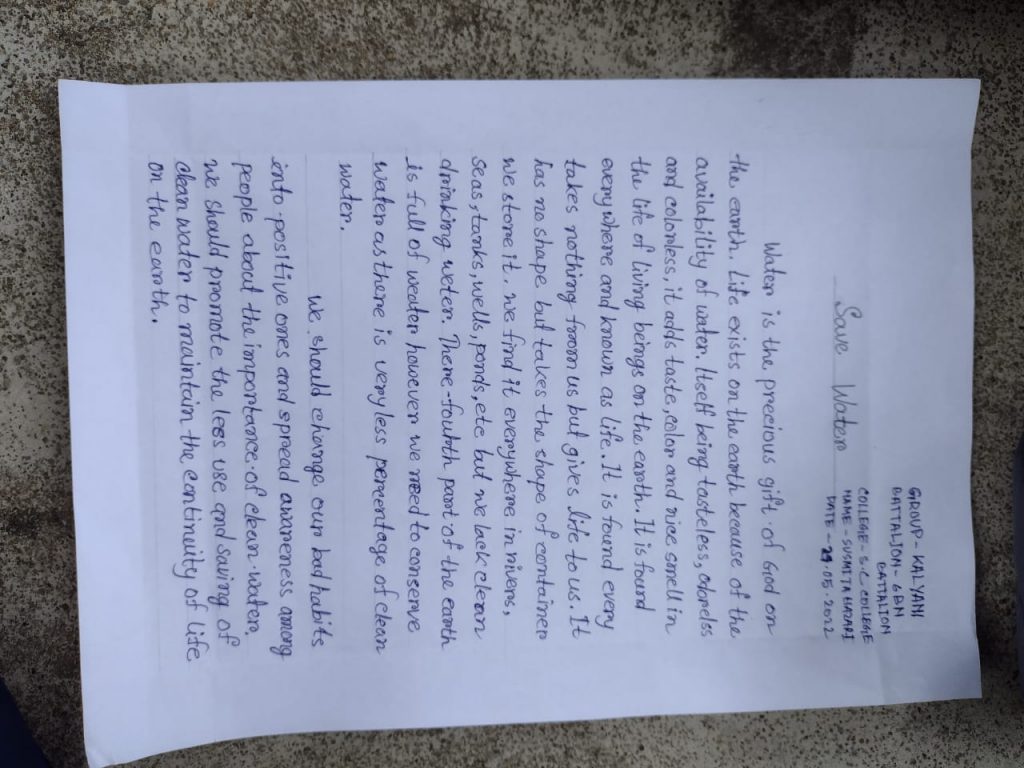 GROUP - KALYANI
BATTALION - 6BN
BATTALION
COLLEGE - S.C COLLEGE
NAME - SUSMITA HAZARI
DATE - 29.05.2022
Save Water
Water is the precious gift of God on
the earth. Life exists on the earth because of the
availability of water. Itself being tasteless, odorles
and colorless, it adds taste, color and nice smell in
the life of living beings on the earth. It is found
everywhere and known as life. It is found every
takes nothing from us but gives life to us. It
has no shape but takes the shape of container
we store it. we find it everywhere in rivers,
seas, tanks, wells, ponds, etc but we lack clean
drinking weter. There-fourth part of the earth
is full of weater however we need to conserve
water as there is very less percentage of clean
water.
we should change our bad habits
into positive ones and spread awareness among
people about the importance of clean water.
we should promote the lees use and saving of
clean water to maintain the continuity of life
on the earth.